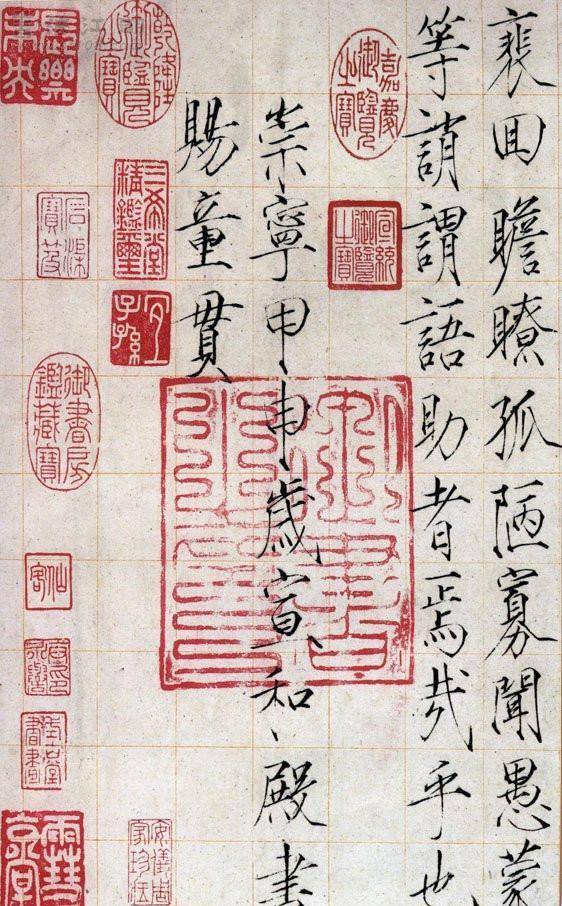 裵回瞻瞭孤陋寡聞愚蒙
等誚謂語助者焉哉乎也
崇寧甲申歲宣和殿書
賜童貫
嘉慶御覽之寶
宣統御覽之寶
乾隆御覽之寶
三希堂精鑑璽
宜子孫
石渠寶笈
御書房鑑藏寶
仙客
安儀周家珍藏